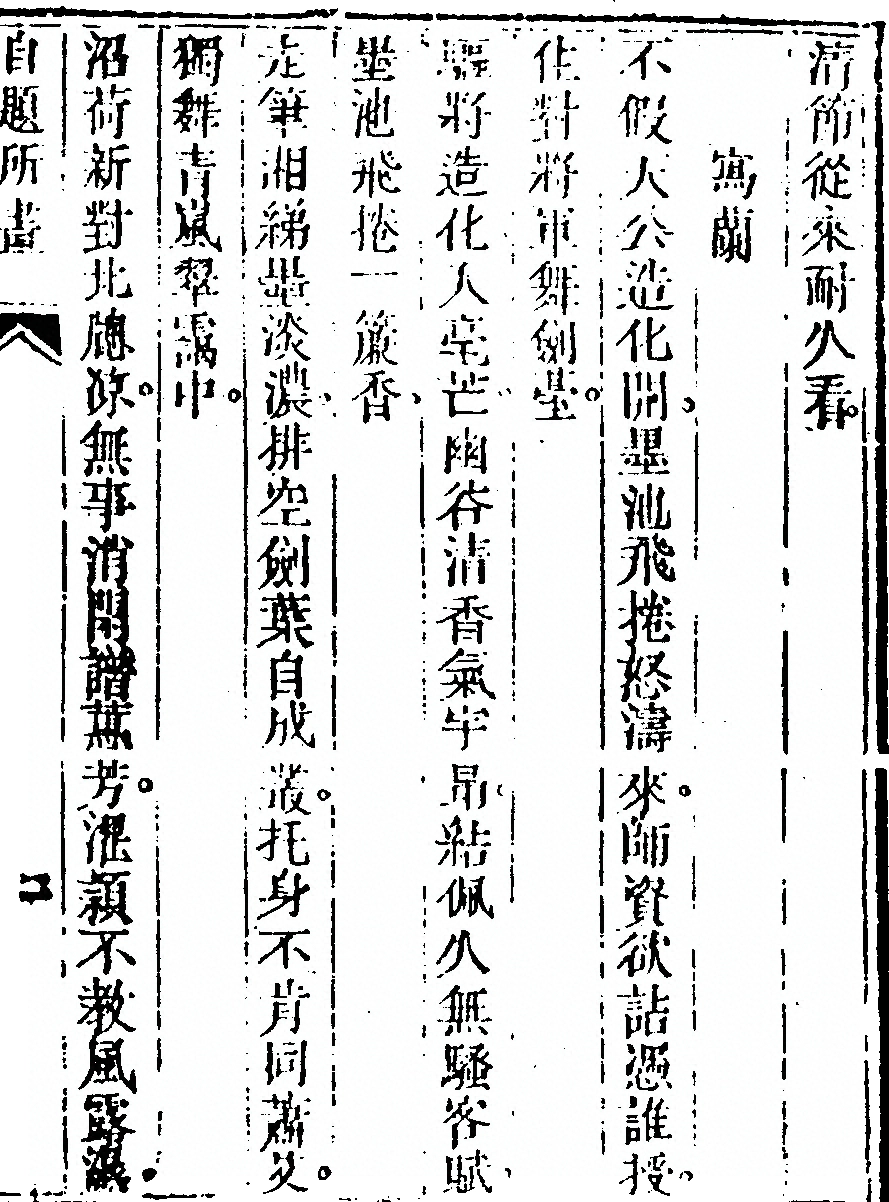 清節從來耐久看。
寫蘭
不假天公造化開。墨池飛捲怒濤來。師資欲詰憑誰授。
佐對將軍舞劍臺。
驅將造化入毫芒。幽谷清香氣牢昂。結佩久無騷客賦。
墨池飛捲一簾香。
走筆湘綈墨淡濃。排空劍葉自成叢。托身不肯同蕭艾。
獨舞青嵐翠靄中。
沼荷新對北牕涼。無事消閒譜蕙芳。湿穎不教風露濕。
自題所畫